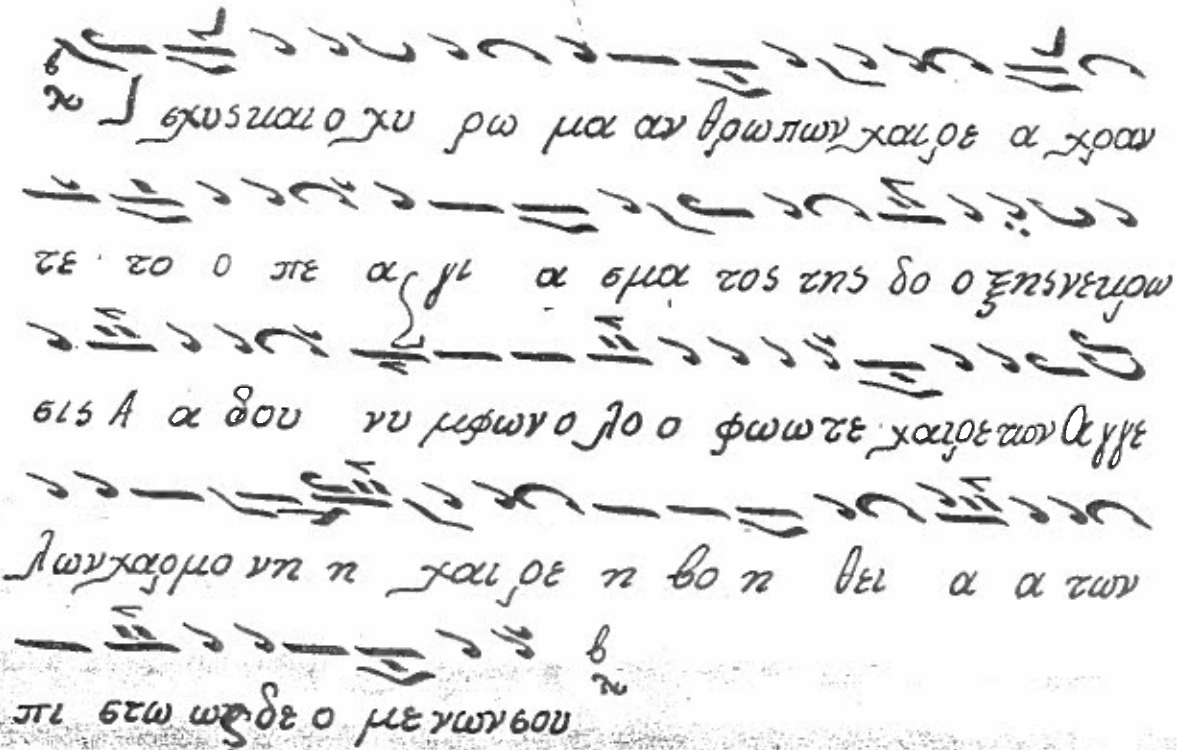 Ισχυς και ο χυ ρω μα αν θρωπων χαιρε α χραν
τε το ο πε α γι α σμα τος της δο ο ξης νεκρω
σις Α α δου νυ μφων ο λο ο φωωτε χαιρε των Αγγε
λων χαρμο νη η χαιρε η βο η θει α α των
πι στω ως δε ο με νων σου